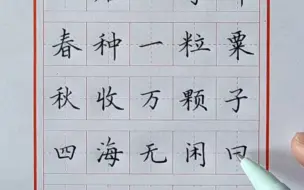 春种一粒粟
秋收万颗子
四海无闲